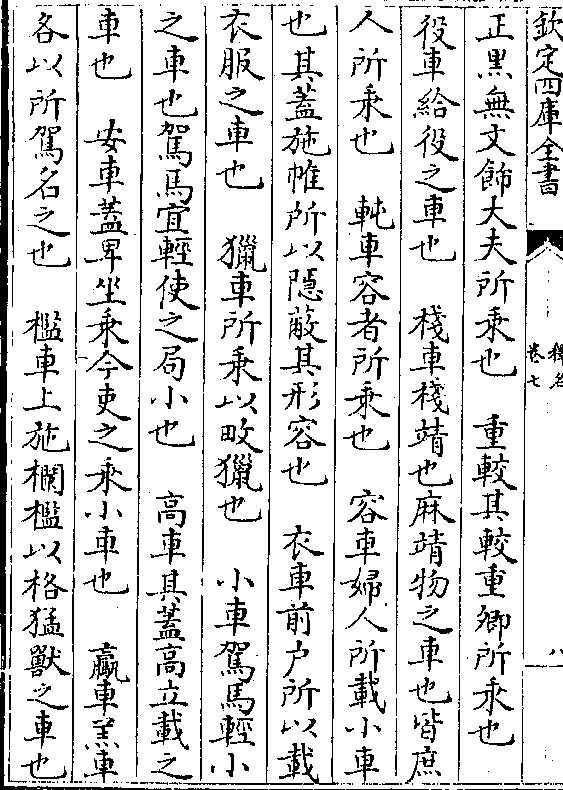 欽定四庫全書
釋名
卷七
八
正黒無文飾大夫所乘也　重較其較重卿所乘也
役車給役之車也　棧車棧靖也麻靖物之車也皆庶
人所乘也　軘車容者所乘也　容車婦人所載小車
也其蓋施帷所以隠蔽其形容也　衣車前户所以載
衣服之車也　獵車所乘以畋獵也　小車駕馬輕小
之車也駕馬宜輕使之局小也　高車其蓋高立載之
車也　安車蓋卑坐乘今吏之乘小車也　羸車羔車
各以所駕名之也　檻車上施欄檻以格猛獸之車也